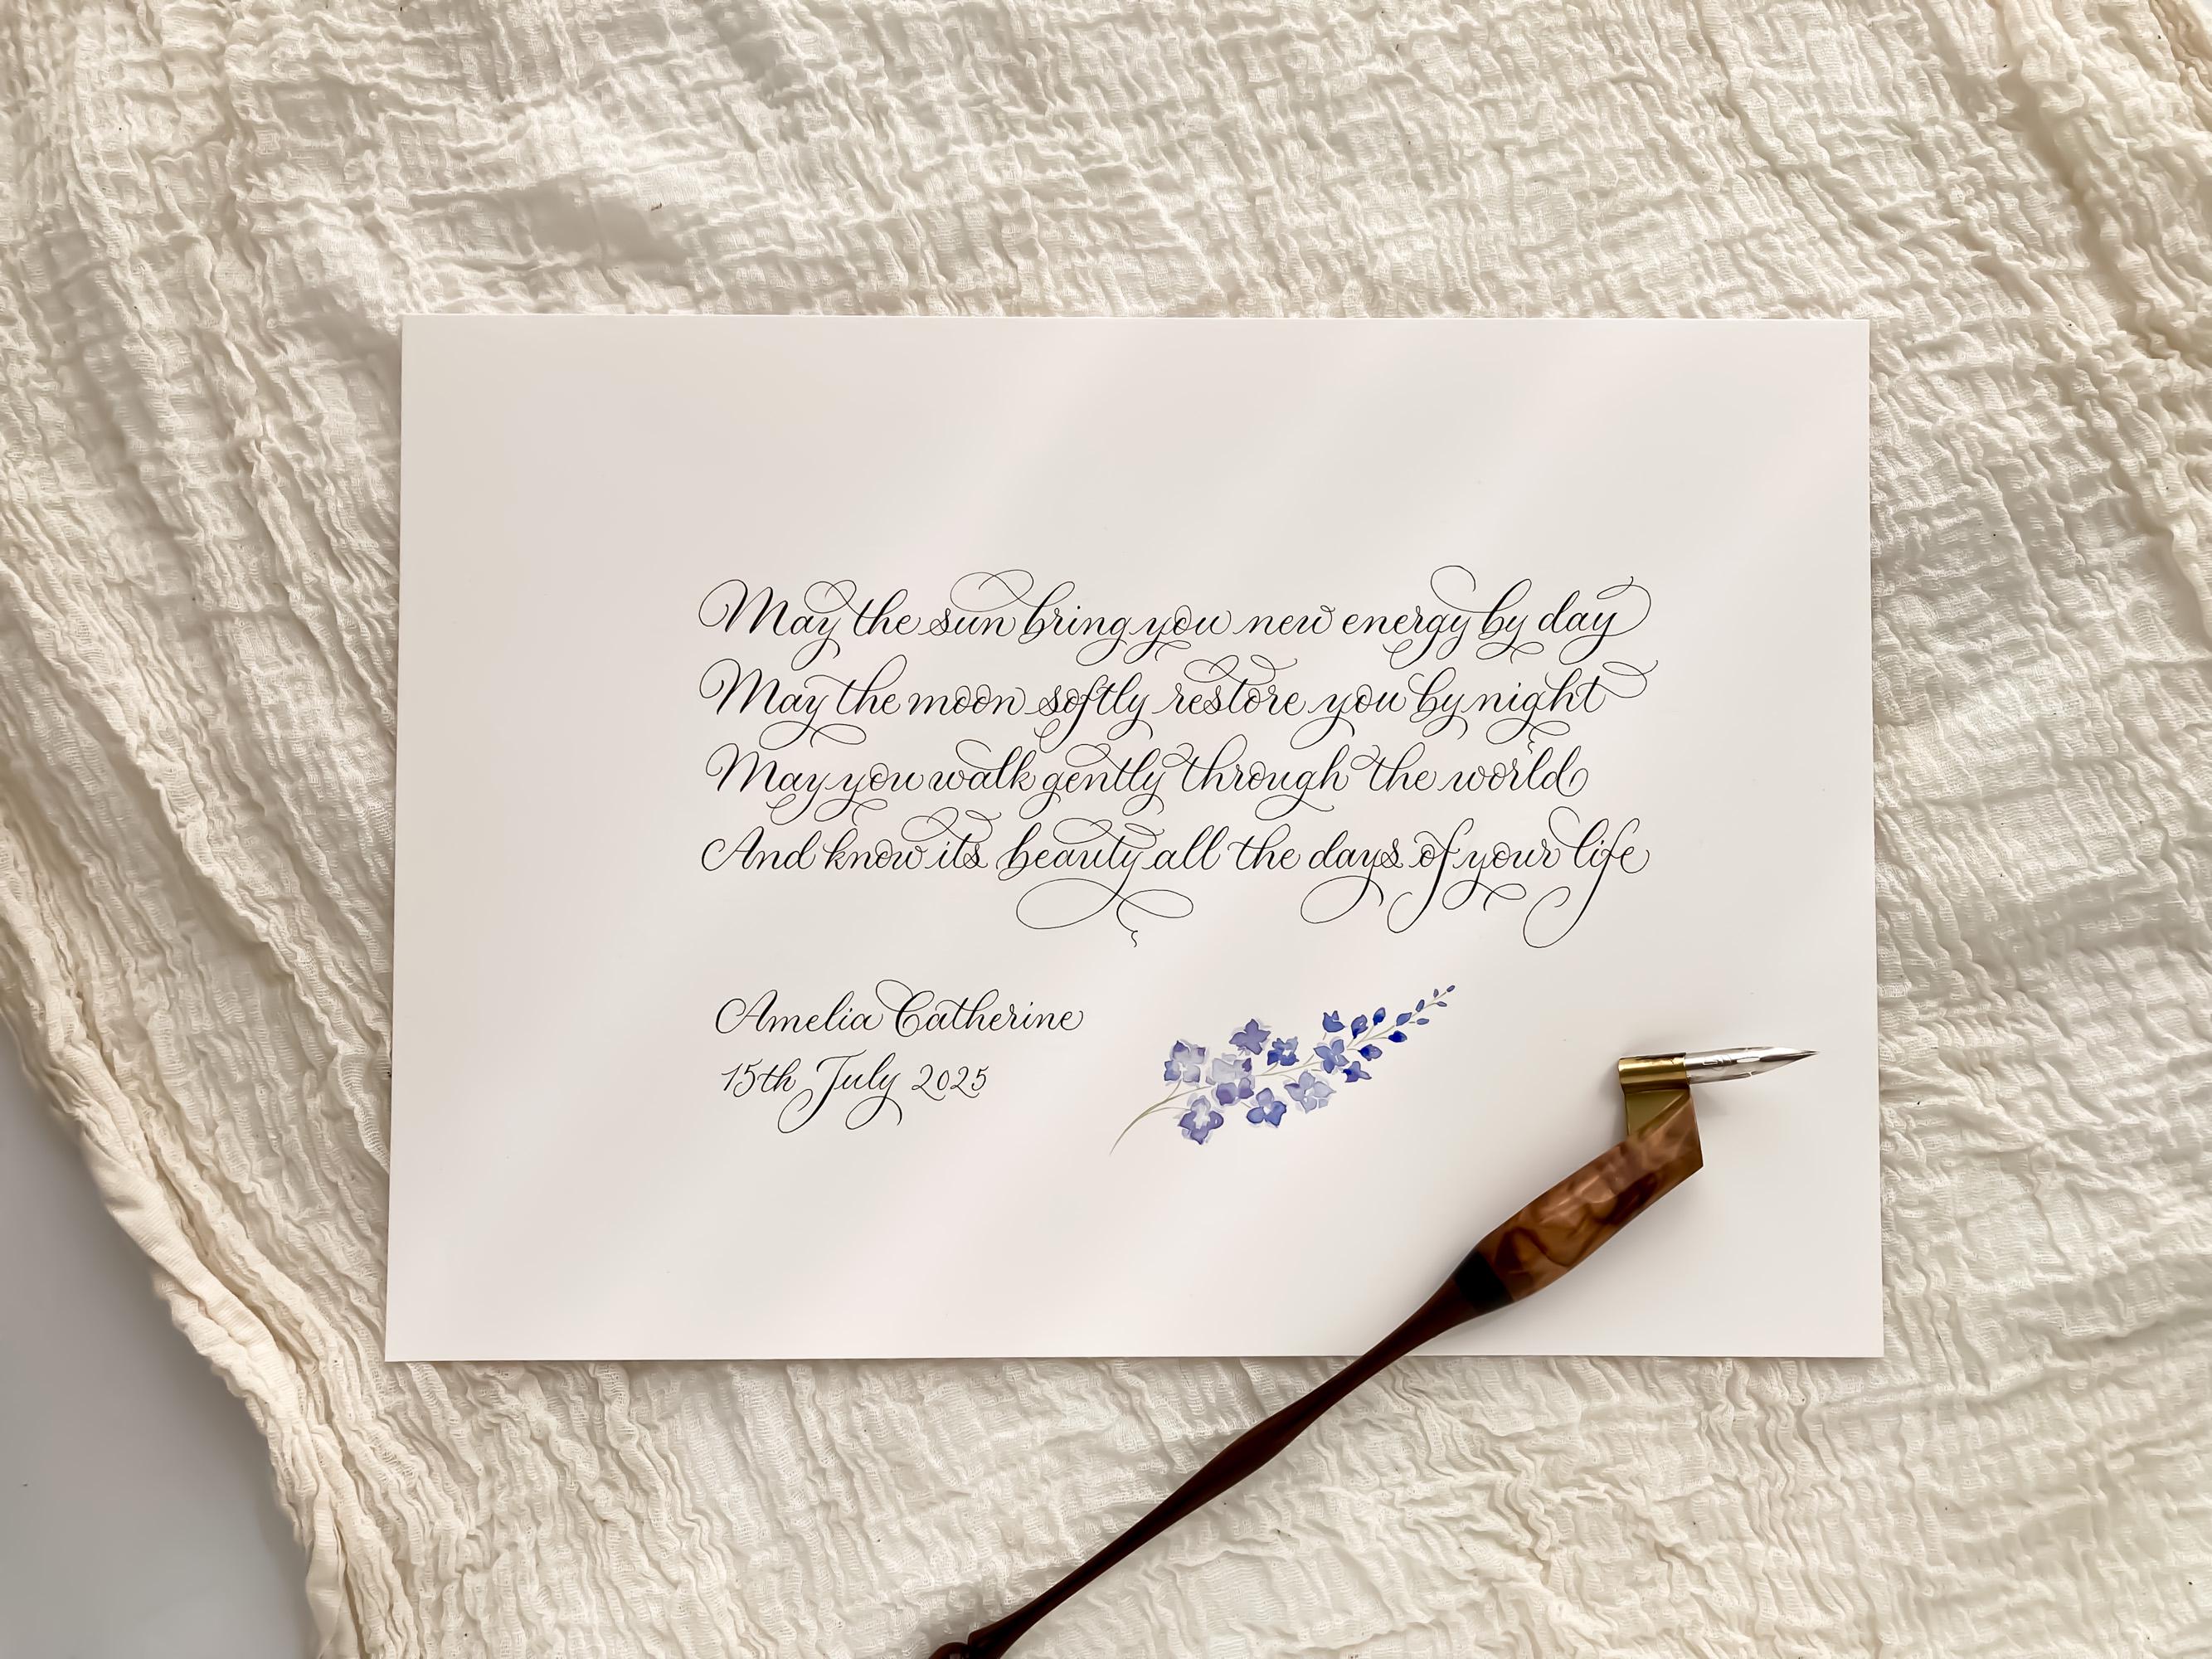 May the sun bring you new energy by day
May the moon softly restore you by night
May you walk gently through the world
And know its beauty all the days of your life
Amelia Catherine
15th July 2025